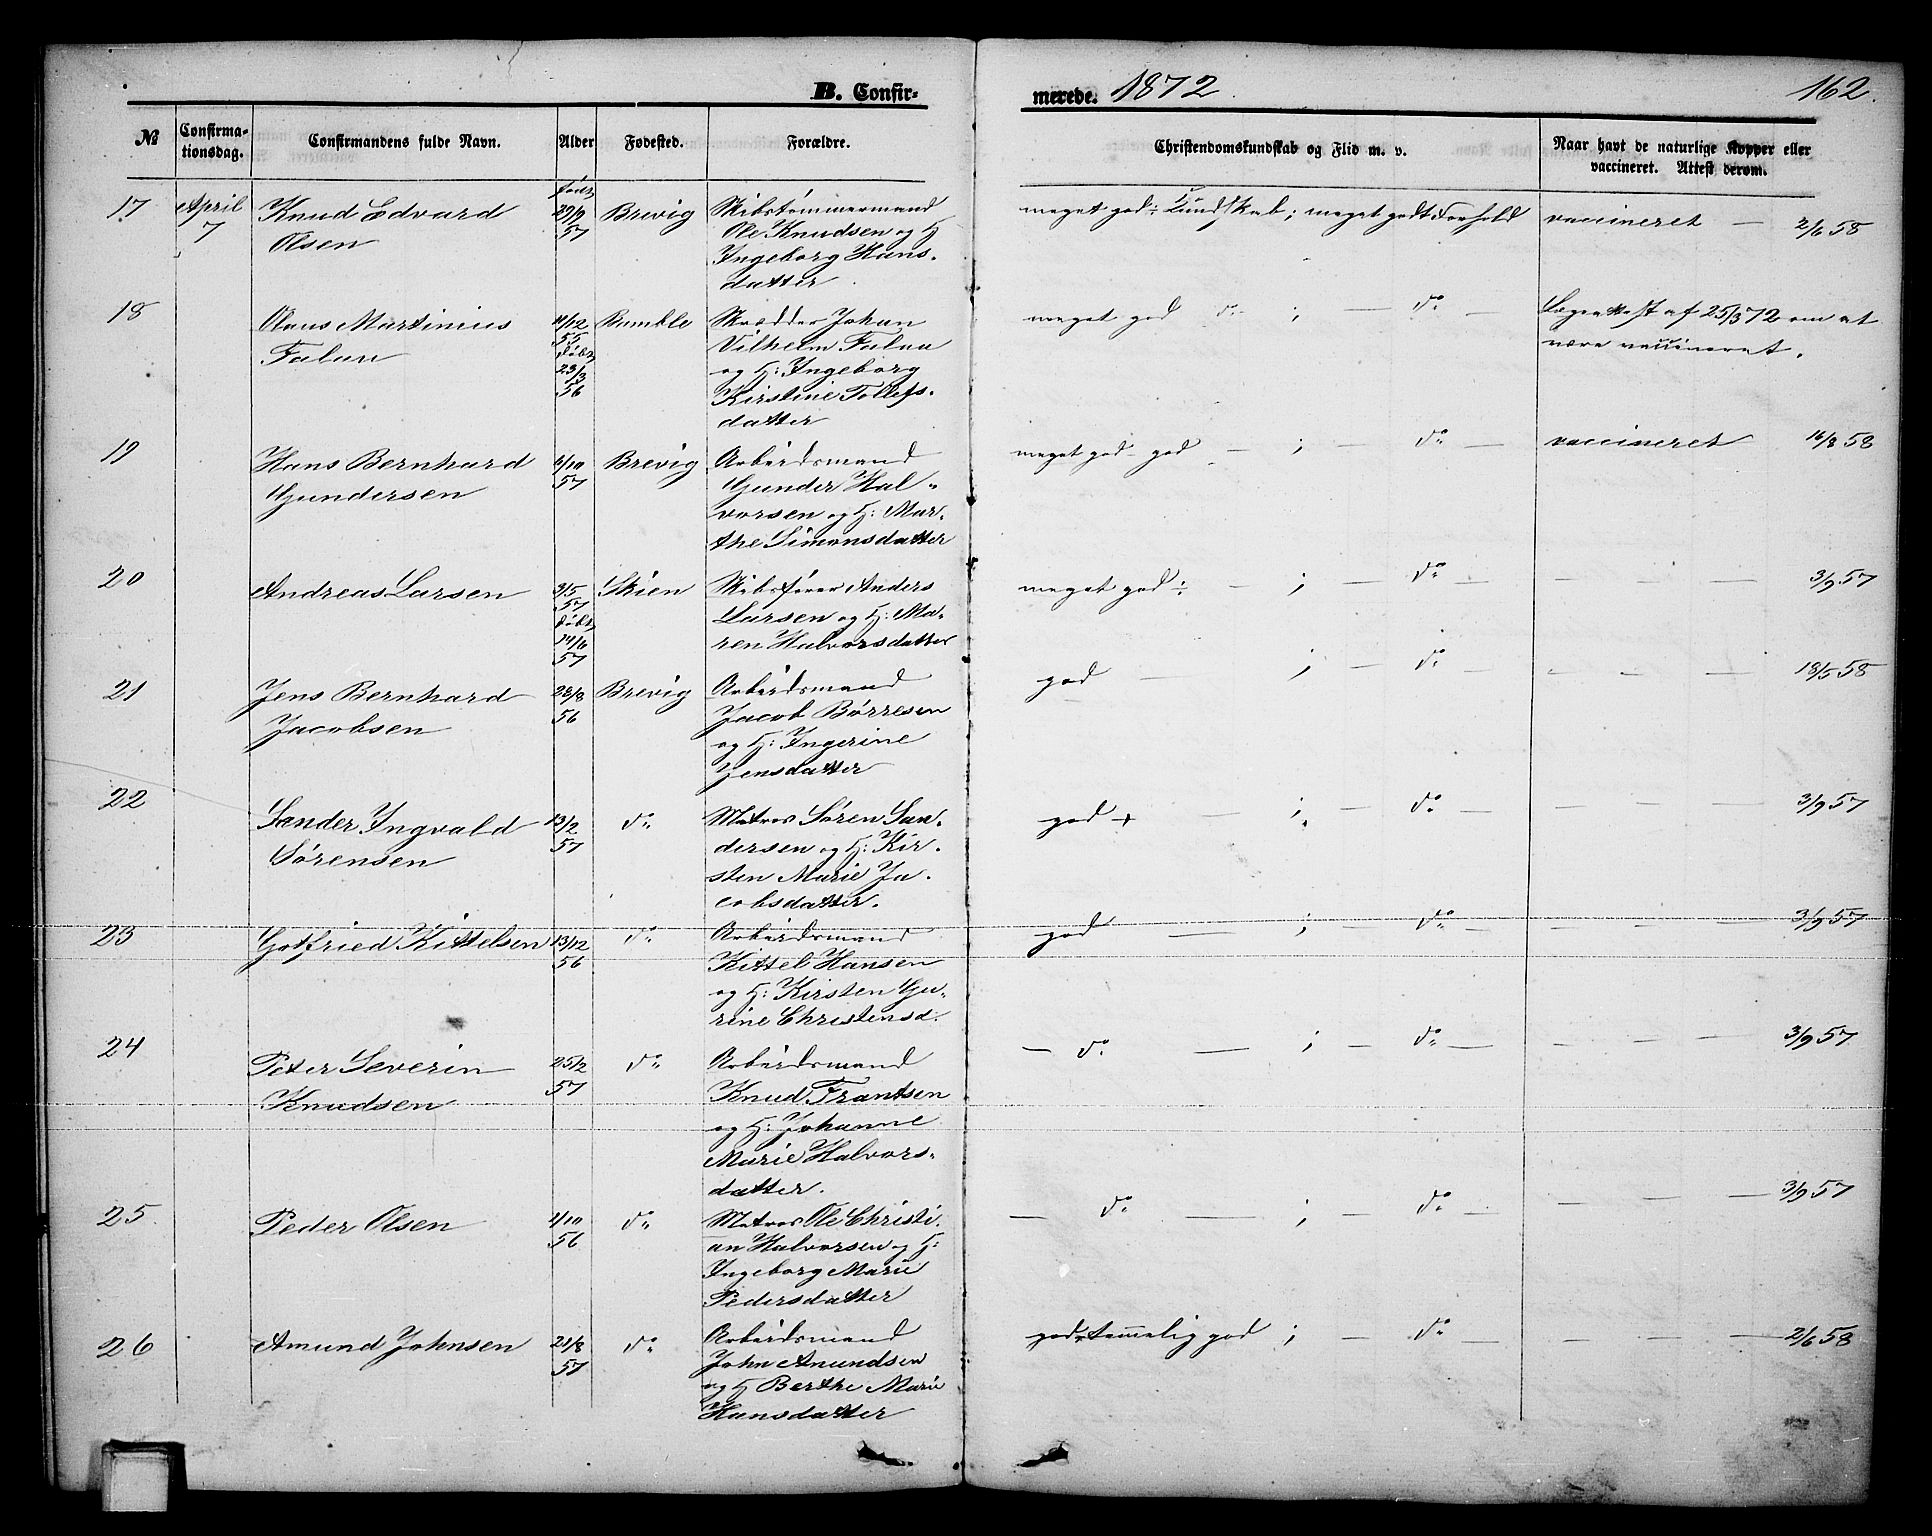 B. Confir-
merede. 1872. 162.
№ Confirma-tionsdag. Confirmandens fulde Navn. Alder Fødested. Forældre. Christendomskundskab og Flid m. v. Naar havt de naturlige Kopper eller vaccineret. Attest derom.
17 April 7 Knud Edvard Olsen født 29/9 57 Brevig Skibstømmermand Ole Knudsen og H Ingeborg Hansdatter meget god ÷ Kundskab; meget godt Forhold vaccineret — 2/6 58
18 Claus Martinius Falan 11/12 55 døbt 23/3 56 Bamble Skrædder Johan Vilhelm Falan og H: Ingeborg Kirstine Tollefsdatter meget god do ; — do — Lægeattest af 25/3 72 om at være vaccineret.
19 Hans Bernhard Gundersen 4/10 57 Brevig Arbeidsmand Gunder Halvorsen og H: Marthe Simonsdatter meget god - god — ; — do — vaccineret 16/8 58
20 Andreas Larsen 3/5 57 døbt 14/6 57 Skien Skibsfører Anders Larsen og H: Maren Halvorsdatter meget god ÷ — ; — do — 3/9 57
21 Jens Bernhard Jacobsen 28/8 56 Brevig Arbeidsmand Jacob Børresen og H: Ingerine Jensdatter god — ; — do — 18/5 58
22 Sander Ingvald Sørensen 13/2 57 do Matros Søren Sandersen og H: Kirsten Marie Jacobsdatter. god + — ; — do — 3/9 57
23 Gotfried Kittelsen 13/12 56 do Arbeidsmand Kittel Hansen og H: Kirsten Gurine Christensd. god — ; — do — 3/9 57
24 Peter Severin Knudsen 25/2 57 do Arbeidsmand Knud Frantsen og H: Johanne Marie Halvorsdatter. — do — ; — do — 3/9 57
25 Peder Olsen 4/10 56 do Matros Ole Christian Halvorsen og H: Ingeborg Marie Pedersdatter — do — ; — do — 3/9 57
26 Amund Johnsen 21/8 57 do Arbeidsmand John Anundsen og H Berthe Marie Hansdatter god-temmelig god ; — do — 2/6 58